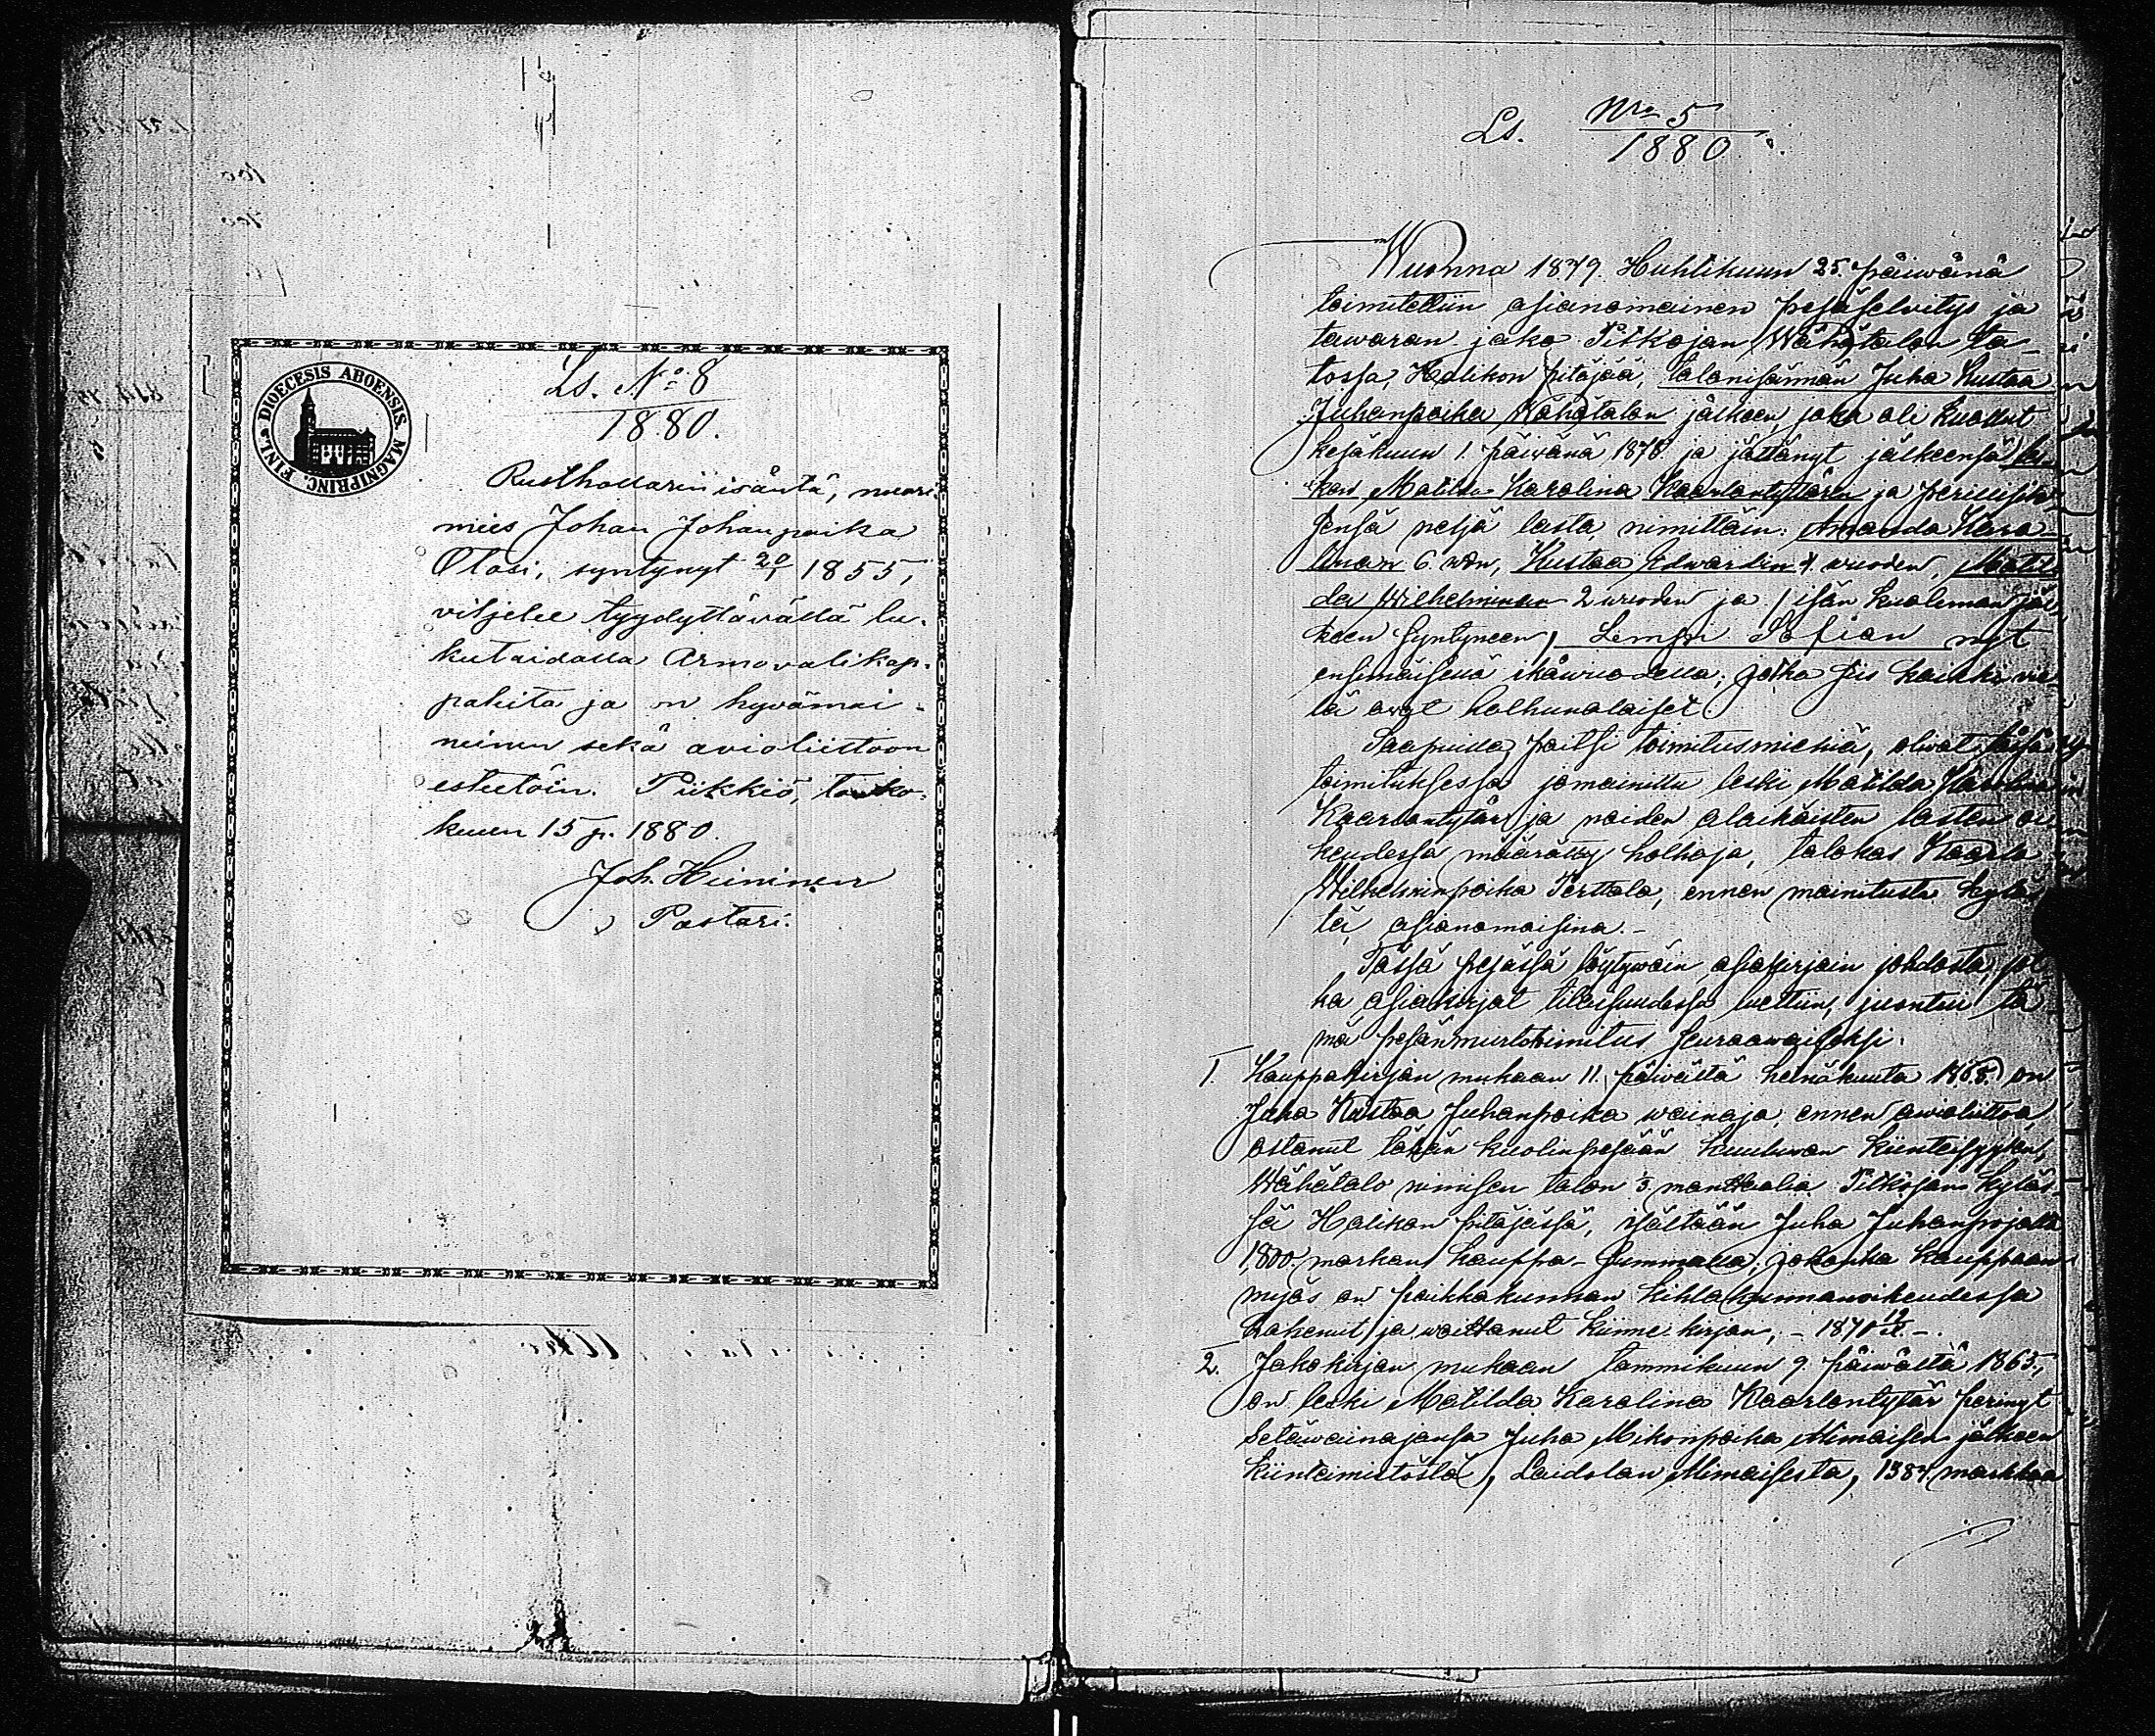 DIOECESIS ABOENSIS. MAGNIPRINC. FINL.
Ls. No. 8
1880.
Rusthollarin isäntä, nuori
mies Johan Johanpoika
Olasi, syntynyt 20/1 1855,
viljelee tyydyttävällä lu-
kutaidolla Armovalikap-
paleita ja on hyvämai-
neinen sekä avioliittoon
esteetöin. Piikkiö, touko-
kuun 15 p. 1880.
Joh. Heininen
Pastori.
Ls. Nro 5
1880.
Wuonna 1879. Huhtikuun 25. päiwänä
toimitettiin asianomainen pesäselvitys ja
tawaran jako Pitkojan Wähätalon ta-
lossa, Halikon pitäjää, talonisännän Juha Kustaa
Juhanpoika Wähätalon jälkeen, joka oli kuollut
kesäkuun 1. päiwänä 1878 ja jättänyt jälkeensä les-
ken Matilda Karolina Kaarlontyttären ja perillisik-
sensä neljä lasta, nimittäin: Amanda Karo-
linan 6. wdn, Kustaa Edwardin 4 wuoden, Matil-
da Wilhelminan 2 wuoden ja isän kuoleman jäl-
keen syntyneen, Lempi Sofian nyt
ensimäisellä ikäwuodella; jotka siis kaikki wie-
lä owat holhunalaiset.
Saapuilla, paitsi toimitusmiehiä, oliwat tässä
toimituksessa jomainittu leski Matilda Karolina
Kaarlontytär ja noiden alaikäisten lasten oi-
keudessa määrätty holhoja, talokas Kaarlo
Wilhelminpoika Perttala, ennen mainitusta kyläs-
tä, asianomaisina.-
Tässä pesässä löytywäin asiakirjain johdosta, jot-
ka asiakirjat tilaisuudessa luettiin, juontui tä-
mä pesänmurtotoimitus seuraawaiseksi.
1. Kauppakirjan mukaan 11. päiwältä heinäkuuta 1868. on
Juha Kustaa Juhanpoika wainaja, ennen awioliittoa,
ostanut tähän kuolinpesään kuuluwan kiinteisyyden,
Wähätalo nimisen talon manttaalia Pitkojan kyläs-
sä Halikon pitäjässä, isältään Juha Juhanpojalta
1,800. markan kauppa-summalla; johonka kauppaan
myös on paikkakunnan kihlakunnanoikeudessa
hakenut ja woittanut kiinne-kirjan, - 1870 -.
2. Jakokirjan mukaan tammikuun 9. päiwältä 1865.,
on leski Matilda Karolina Kaarlontytär perinyt
setäwainajansa Juha Mikonpoika Mimaisen jälkeen
kiinteimistöstä, Laidolan Mimaisesta, 1384. markkaa